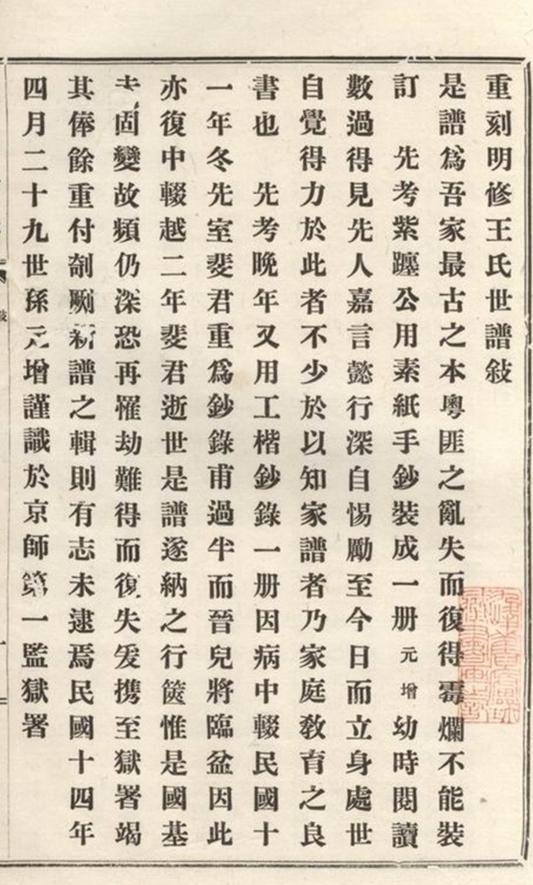 重刻明修王氏世譜敍
是譜爲吾家最古之本粵匪之亂失而復得霉爛不能裝
訂 先考紫躔公用素紙手鈔裝成一册元增幼時閱讀
數過得見先人嘉言懿行深自惕勵至今日而立身處世
自覺得力於此者不少於以知家譜者乃家庭敎育之良
書也 先考晚年又用工楷鈔錄一册因病中輟民國十
一年冬先室斐君重爲鈔錄甫過半而晉兒將臨盆因此
亦復中輟越二年斐君逝世是譜遂納之行篋惟是國基
未固變故頻仍深恐再罹劫難得而復失爰携至獄署竭
其俸餘重付剞劂新譜之輯則有志未逮焉民國十四年
四月二十九世孫元增謹識於京師第一監獄署